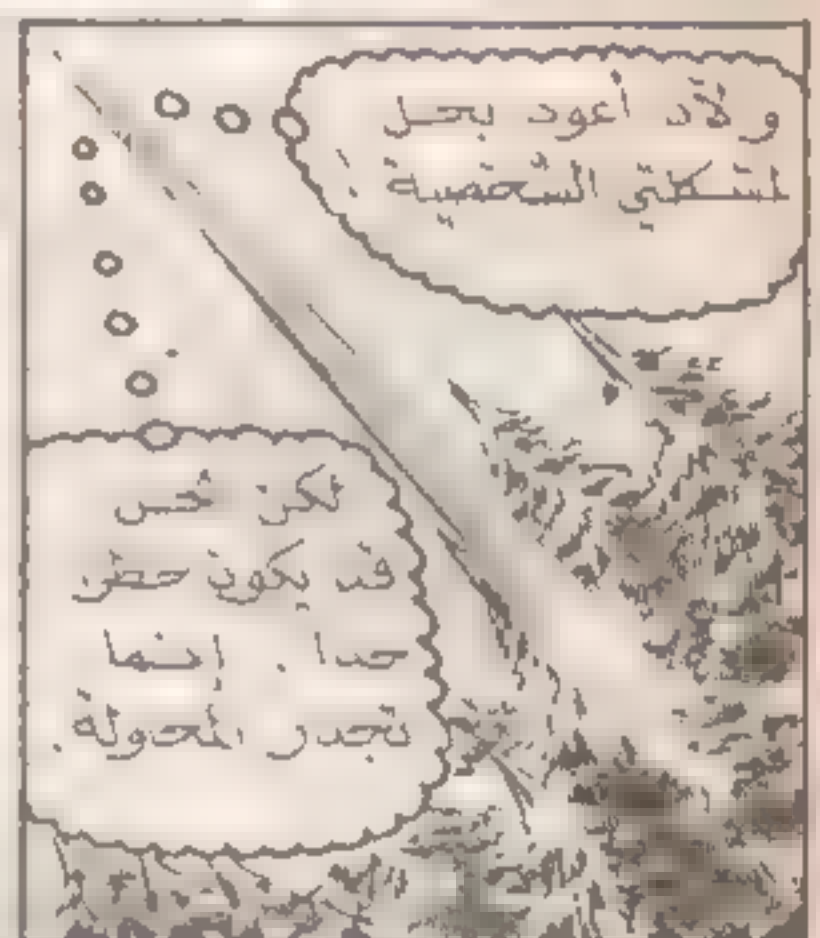 ولابد أعود بحل
لمشكلتي الشخصية
لكن
قد يكون خطر
جدا . إنما
تجدر المحولة